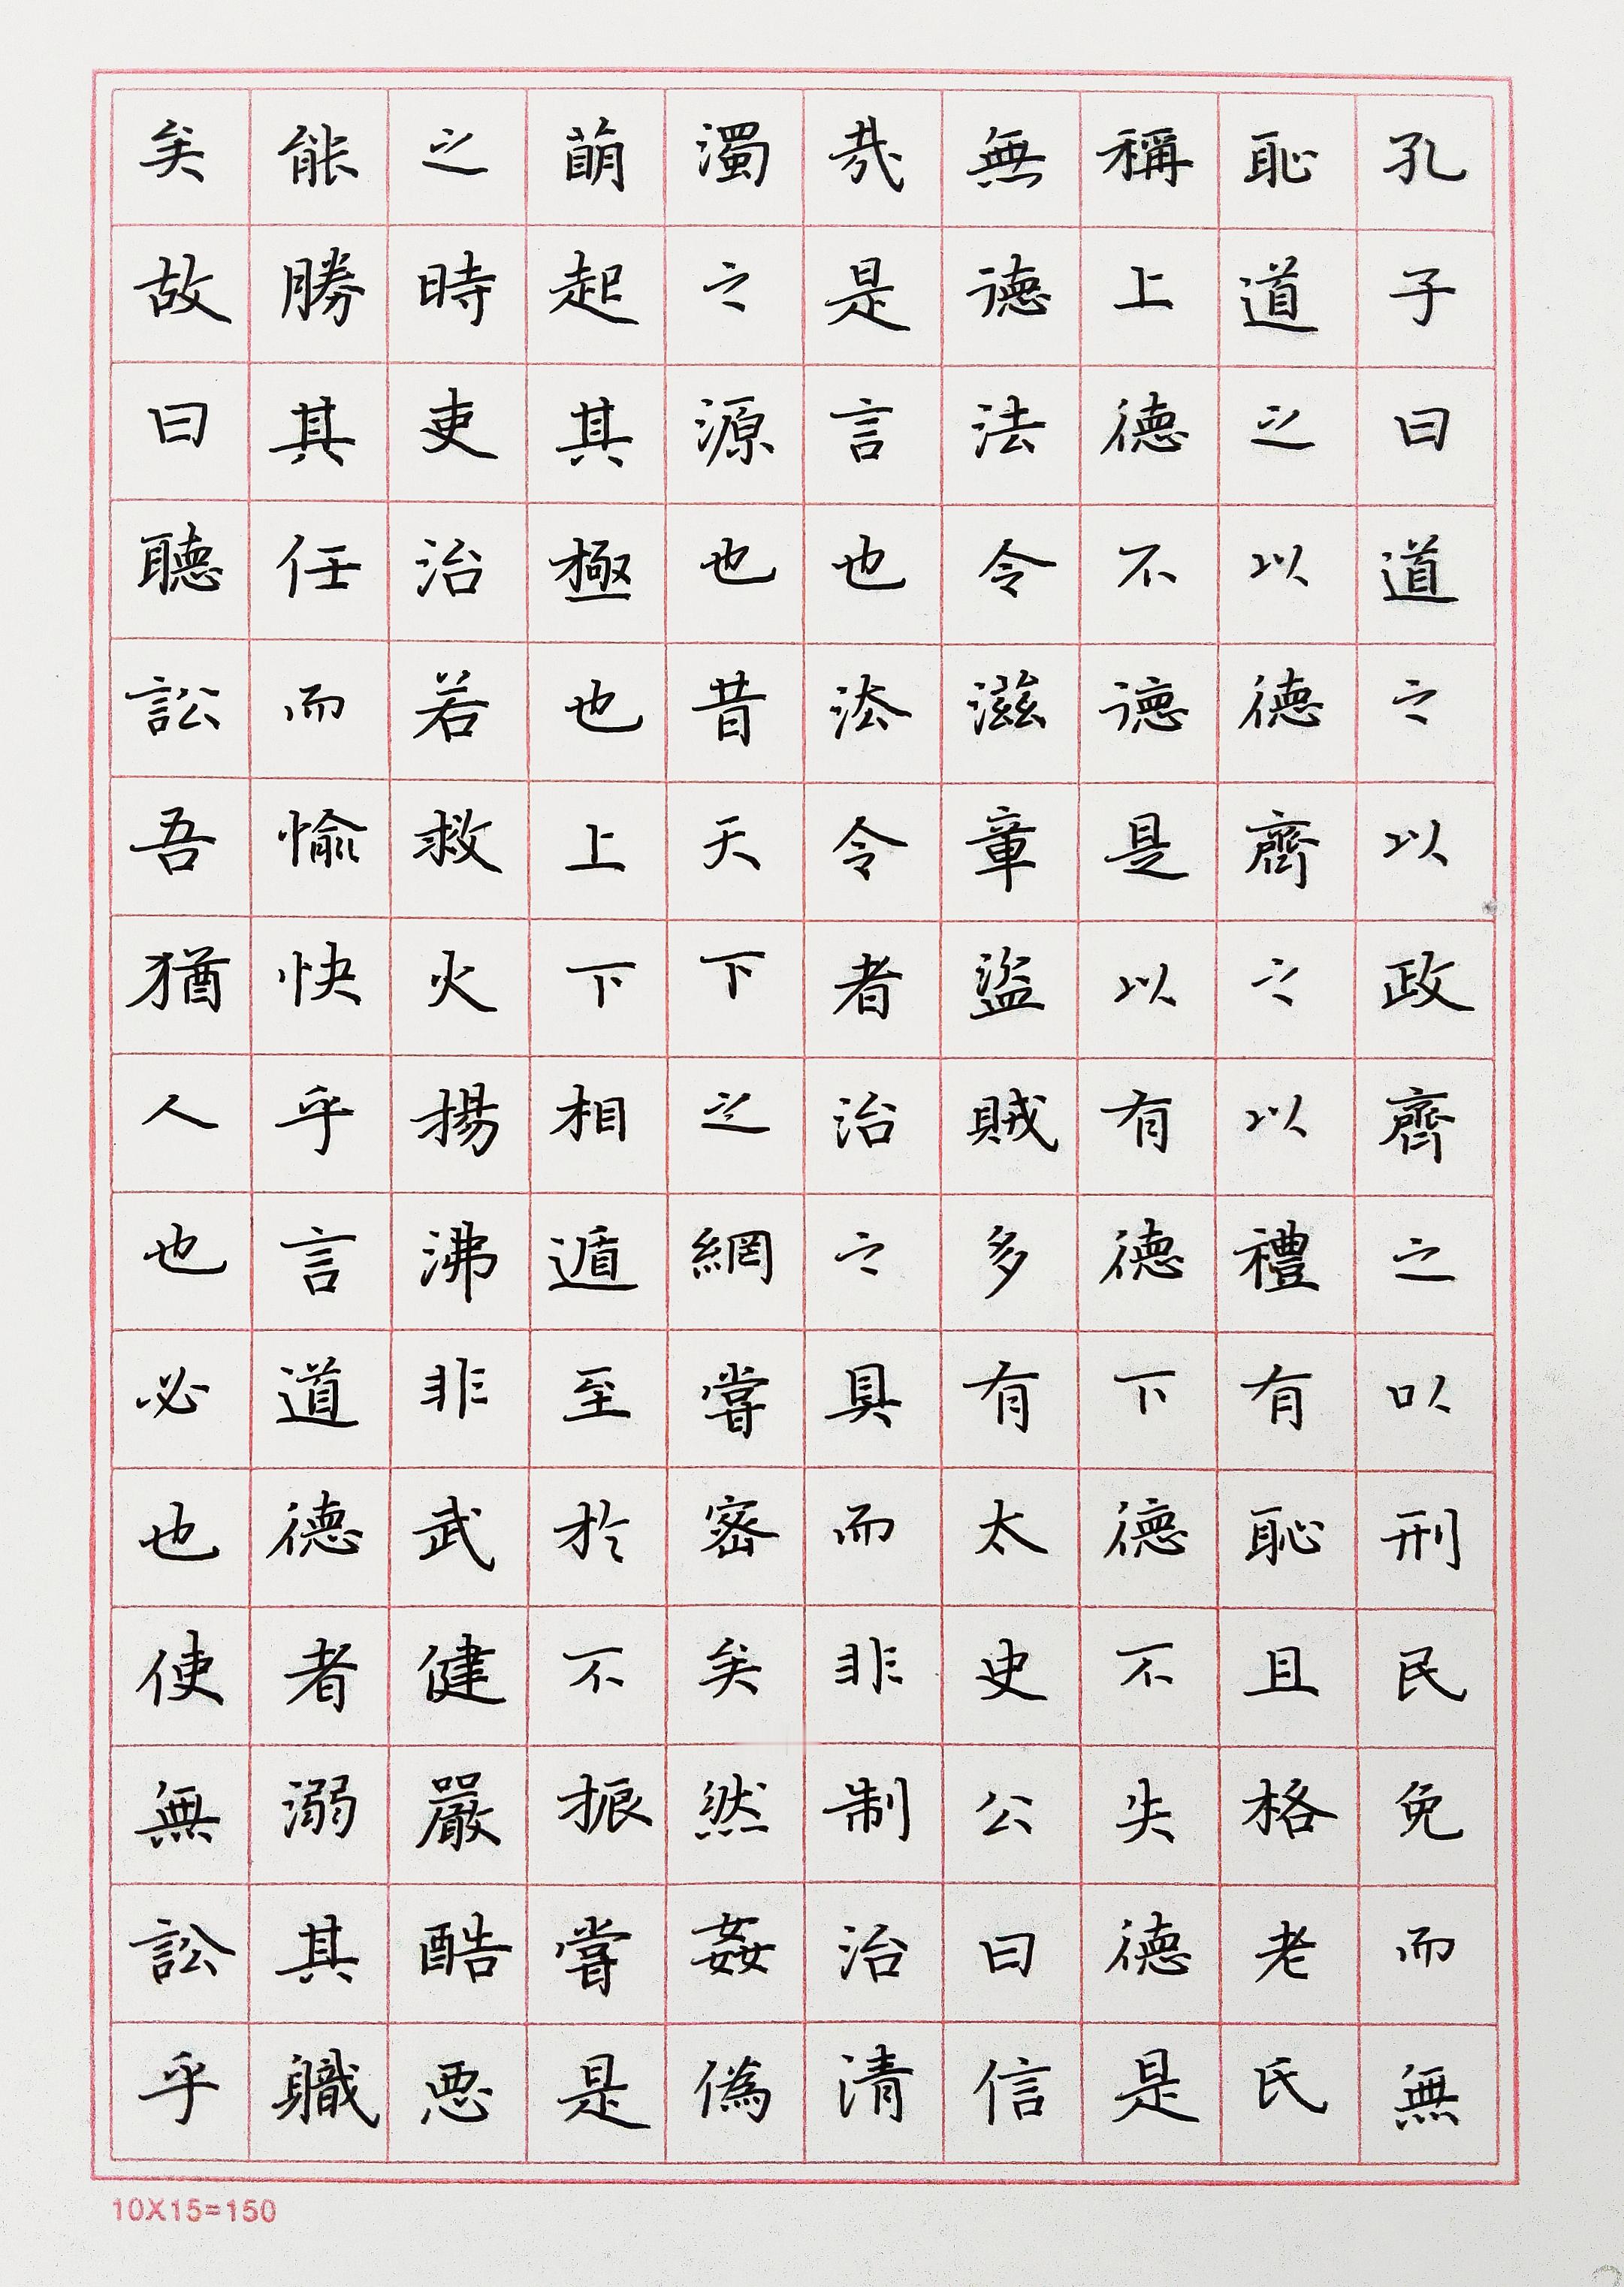 孔子曰道之以政齊之以刑民免而無
恥道之以德齊之以禮有恥且格老氏
稱上德不德是以有德下德不失德是
無德法令滋章盜賊多有太史公曰信
哉是言也法令者治之具而非制治清
濁之源也昔天下之網嘗密矣然姦偽
萌起其極也上下相遁至於不振嘗是
之時吏治若救火揚沸非武健嚴酷惡
能勝其任而愉快乎言道德者溺其職
矣故曰聽訟吾猶人也必也使無訟乎
10X15=150